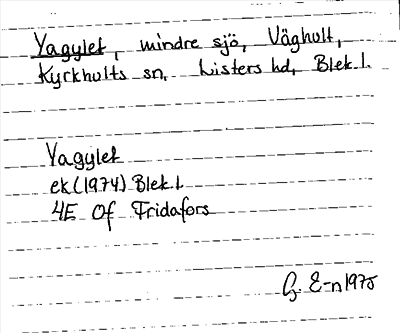 Yagylet, mindre sjö, Våghult,
Kyrkhults sn, Listers hd, Blek. l.
Yagylet
ek (1974) Blek. l.
4E 0f Fridafors
G. E-n 1975